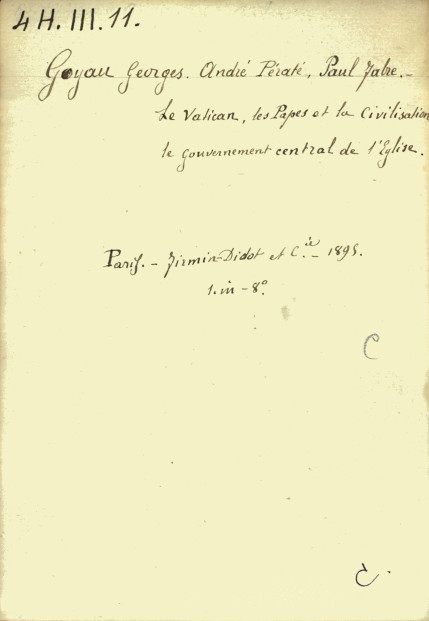 4 H. III. 11.
Goyau Georges. André Pératé, Paul Fabre.-
Le Vatican, les Papes et la Civilisation
le gouvernement central de l'Eglise.
Paris. - Firmin-Didot et C.ie - 1895.
1. in - 8º.
C
C.